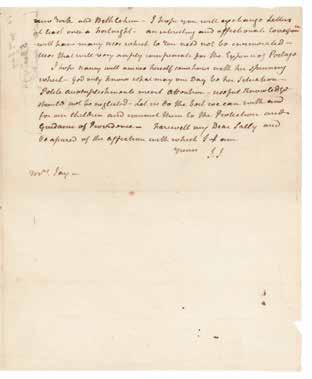 New York and Bethlehem - I hope you will exchange Letters
at least once a fortnight. an interesting and affectionate
will have many uses which to you need not be enumerated -
uses that will very amply compensate for the Expence of Postage
I hope Nancy will amuse herself sometimes with her Spinning
wheel - God only knows what may one Day be her Situation -
Polite accomplishments merit attention - useful Knowledge
should not be neglected - Let us do the best we can with and
for our children and commit them to the Protection and
Guidance of Providence - farewell my Dear Sally and
be assured of the affection with which I am
Yours J J
Mrs. Jay -